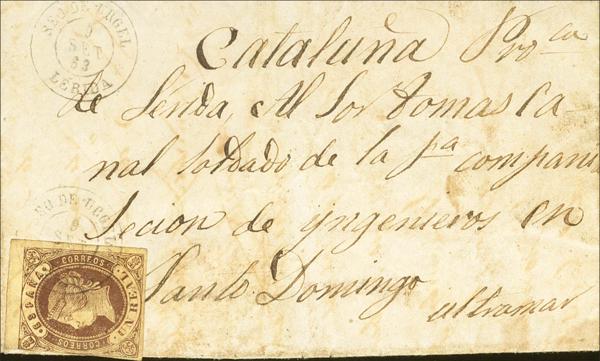 SEO DE URGEL
9
SET
63
LERIDA
Cataluña Pro.ca
de Lerida, Al Sor tomas Ca
nal soldado de la pa compani
Secion de yngenieros en
Santo Domingo
ultramar
SEO DE URGEL
9
CORREOS
ESPAÑA
UN REAL
CORREOS